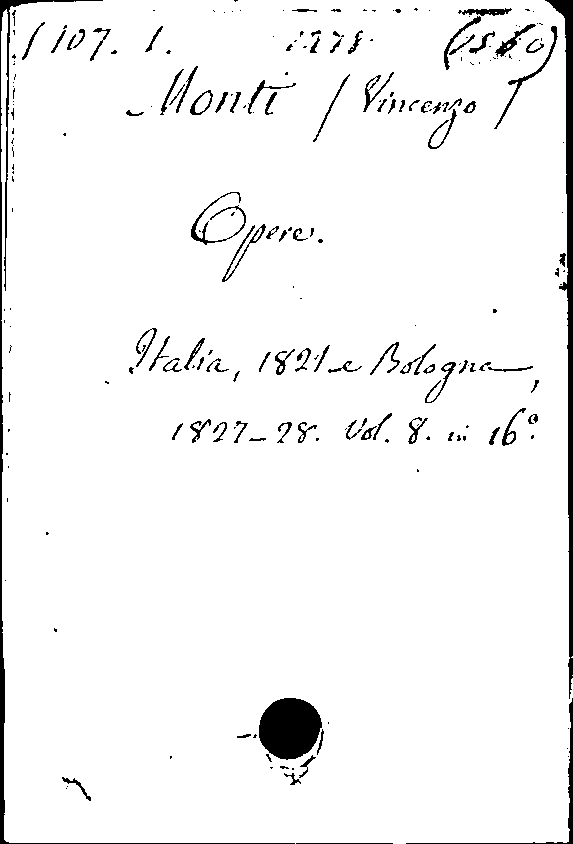 107. 1. 1278 (1860)
Monti / Vincenzo /
Opere.
Italia, 1821 e Bologna,
1827-28. Vol. 8. in 16º.